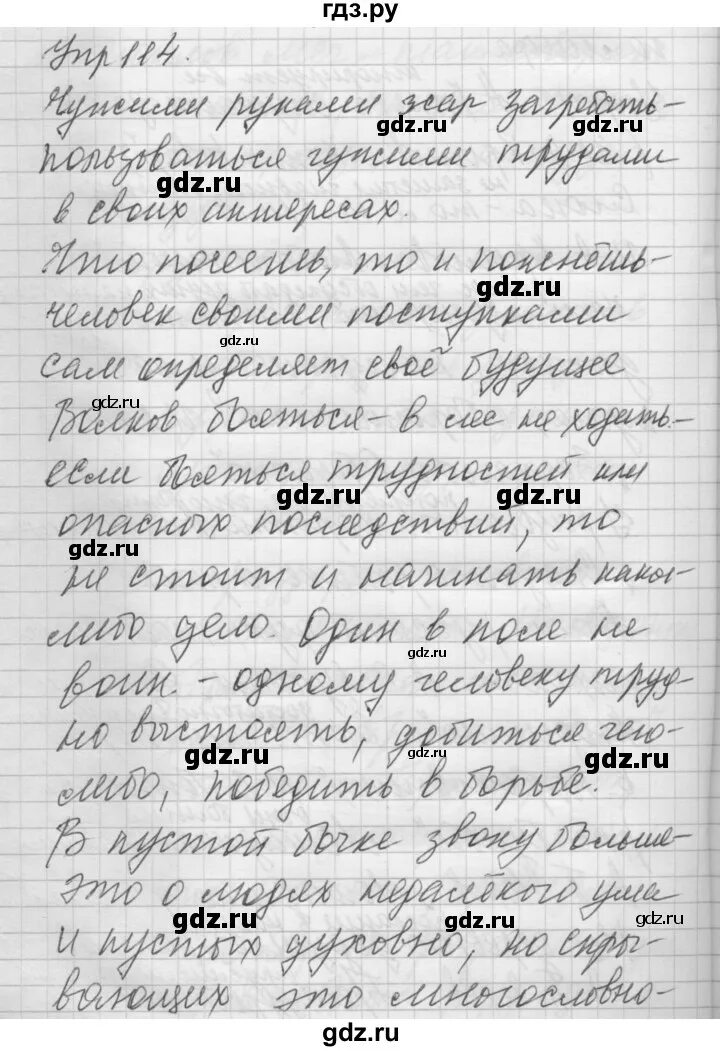 гдз.ру
Упр 114.
Чужими руками жар загребать-
gdz.ru gdz.ru
пользоваться чужими трудами
gdz.ru
в своих интересах.
Что посеешь, то и пожнёшь-
gdz.ru
человек своими поступками
сам определяет своё будущее
gdz.ru
Волков бояться - в лес не ходить.-
если бояться трудностей или
gdz.ru gdz.ru
опасных последствий, то
gdz.ru
не стоит и начинать какое-
либо дело. Один в поле не
воин. - одному человеку труд-
но выстоять, добиться чего-
gdz.ru gdz.ru
либо, победить в борьбе.
В пустой бочке звону больше-
это о людях недалёкого ума
gdz.ru gdz.ru
и пустых духовно, но скры-
вающих это многословно-
gdz.ru
гдз.ру